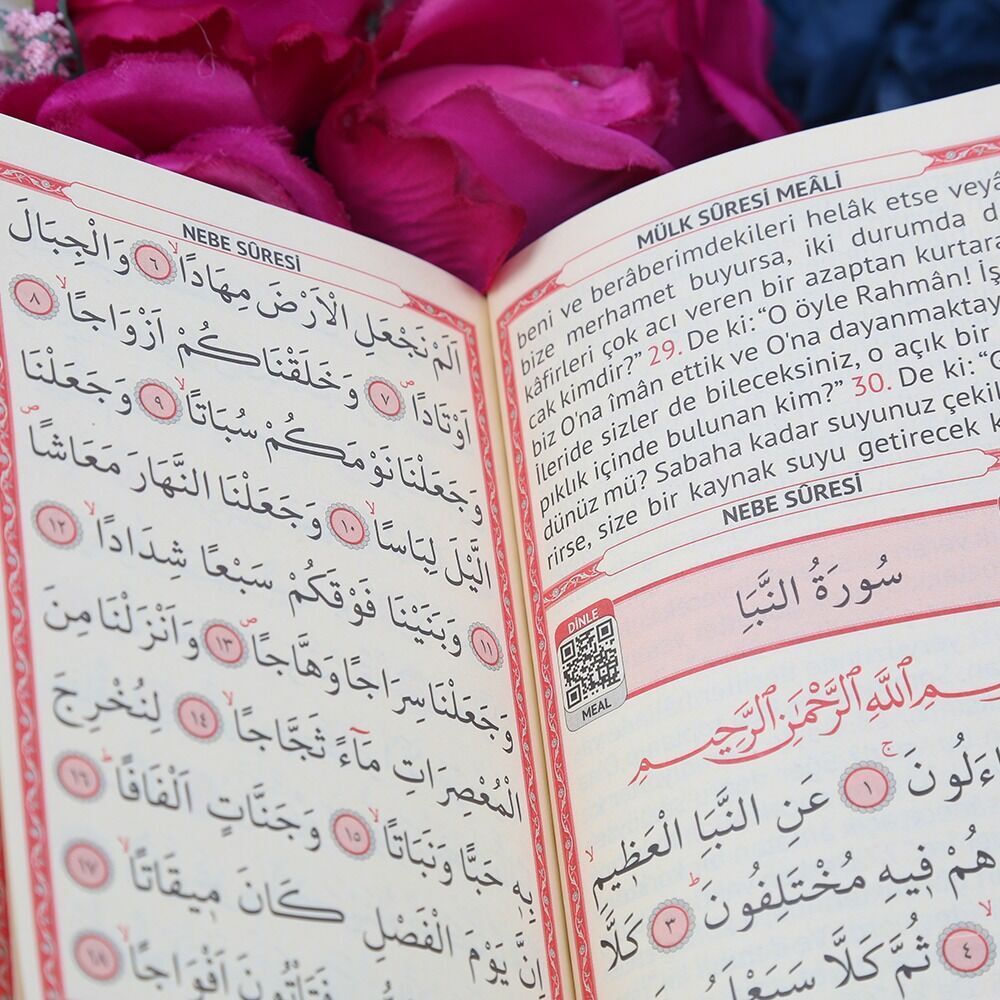 NEBE SÛRESİ
اَلَمْ نَجْعَلِ الْاَرْضَ مِهَادًاۙ ٦ وَالْجِبَالَ
اَوْتَادًاۖ ٧ وَخَلَقْنَاكُمْ اَزْوَاجًاۙ ٨
وَجَعَلْنَا نَوْمَكُمْ سُبَاتًاۙ ٩ وَجَعَلْنَا
الَّيْلَ لِبَاسًاۙ ١٠ وَجَعَلْنَا النَّهَارَ مَعَاشًاۖ
١١ وَبَنَيْنَا فَوْقَكُمْ سَبْعًا شِدَادًاۙ ١٢
وَجَعَلْنَا سِرَاجًا وَهَّاجًاۖ ١٣ وَاَنْزَلْنَا مِنَ
الْمُعْصِرَاتِ مَٓاءً ثَجَّاجًاۙ ١٤ لِنُخْرِجَ
بِهٖ حَبًّا وَنَبَاتًاۙ ١٥ وَجَنَّاتٍ اَلْفَافًاۜ ١٦
اِنَّ يَوْمَ الْفَصْلِ كَانَ مٖيقَاتًاۙ ١٧
فَتَأْتُونَ اَفْوَاجًاۙ ١٨
MÜLK SÛRESİ MEÂLİ
beni ve berâberimdekileri helâk etse veyâ
bize merhamet buyursa, iki durumda d
kâfirleri çok acı veren bir azaptan kurtara
cak kimdir?” 29. De ki: “O öyle Rahmân! İş
biz O'na îmân ettik ve O'na dayanmaktay
ileride sizler de bileceksiniz, o açık bir
pıklık içinde bulunan kim?” 30. De ki: “G
dünüz mü? Sabaha kadar suyunuz çekil
rirse, size bir kaynak suyu getirecek k
NEBE SÛRESİ
سُورَةُ النَّبَاِ
DİNLE
MEAL
ـمِ ٱللّٰهِ ٱلرَّحْمٰنِ ٱلرَّحِيمِ
ـاءَلُونَۚ ١ عَنِ النَّبَاِ الْعَظٖيمِۙ
هُمْ فٖيهِ مُخْتَلِفُونَۜ ٣ كَلَّا
٤ ثُمَّ كَلَّا سَيَعْلَمُ